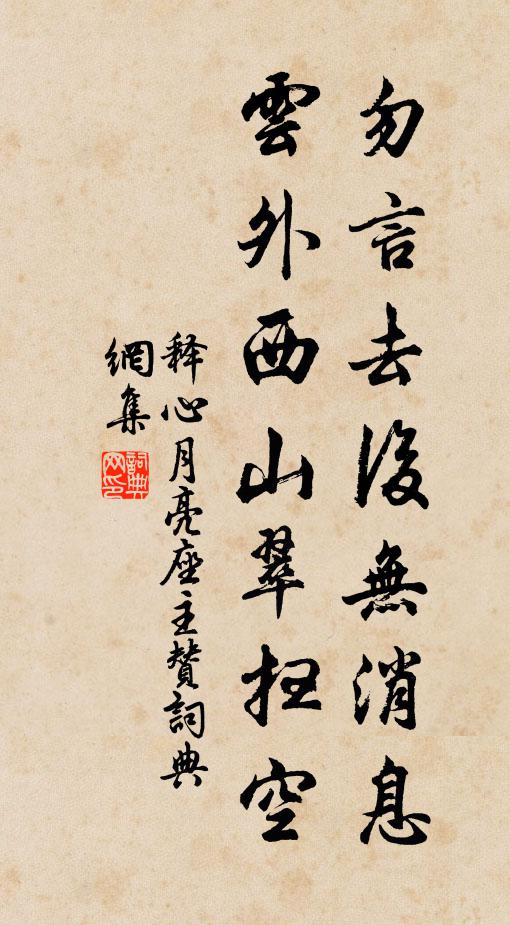 勿言去後無消息
雲外西山翠扫空
释心月亮座主贊詞典
網集
詞典网印